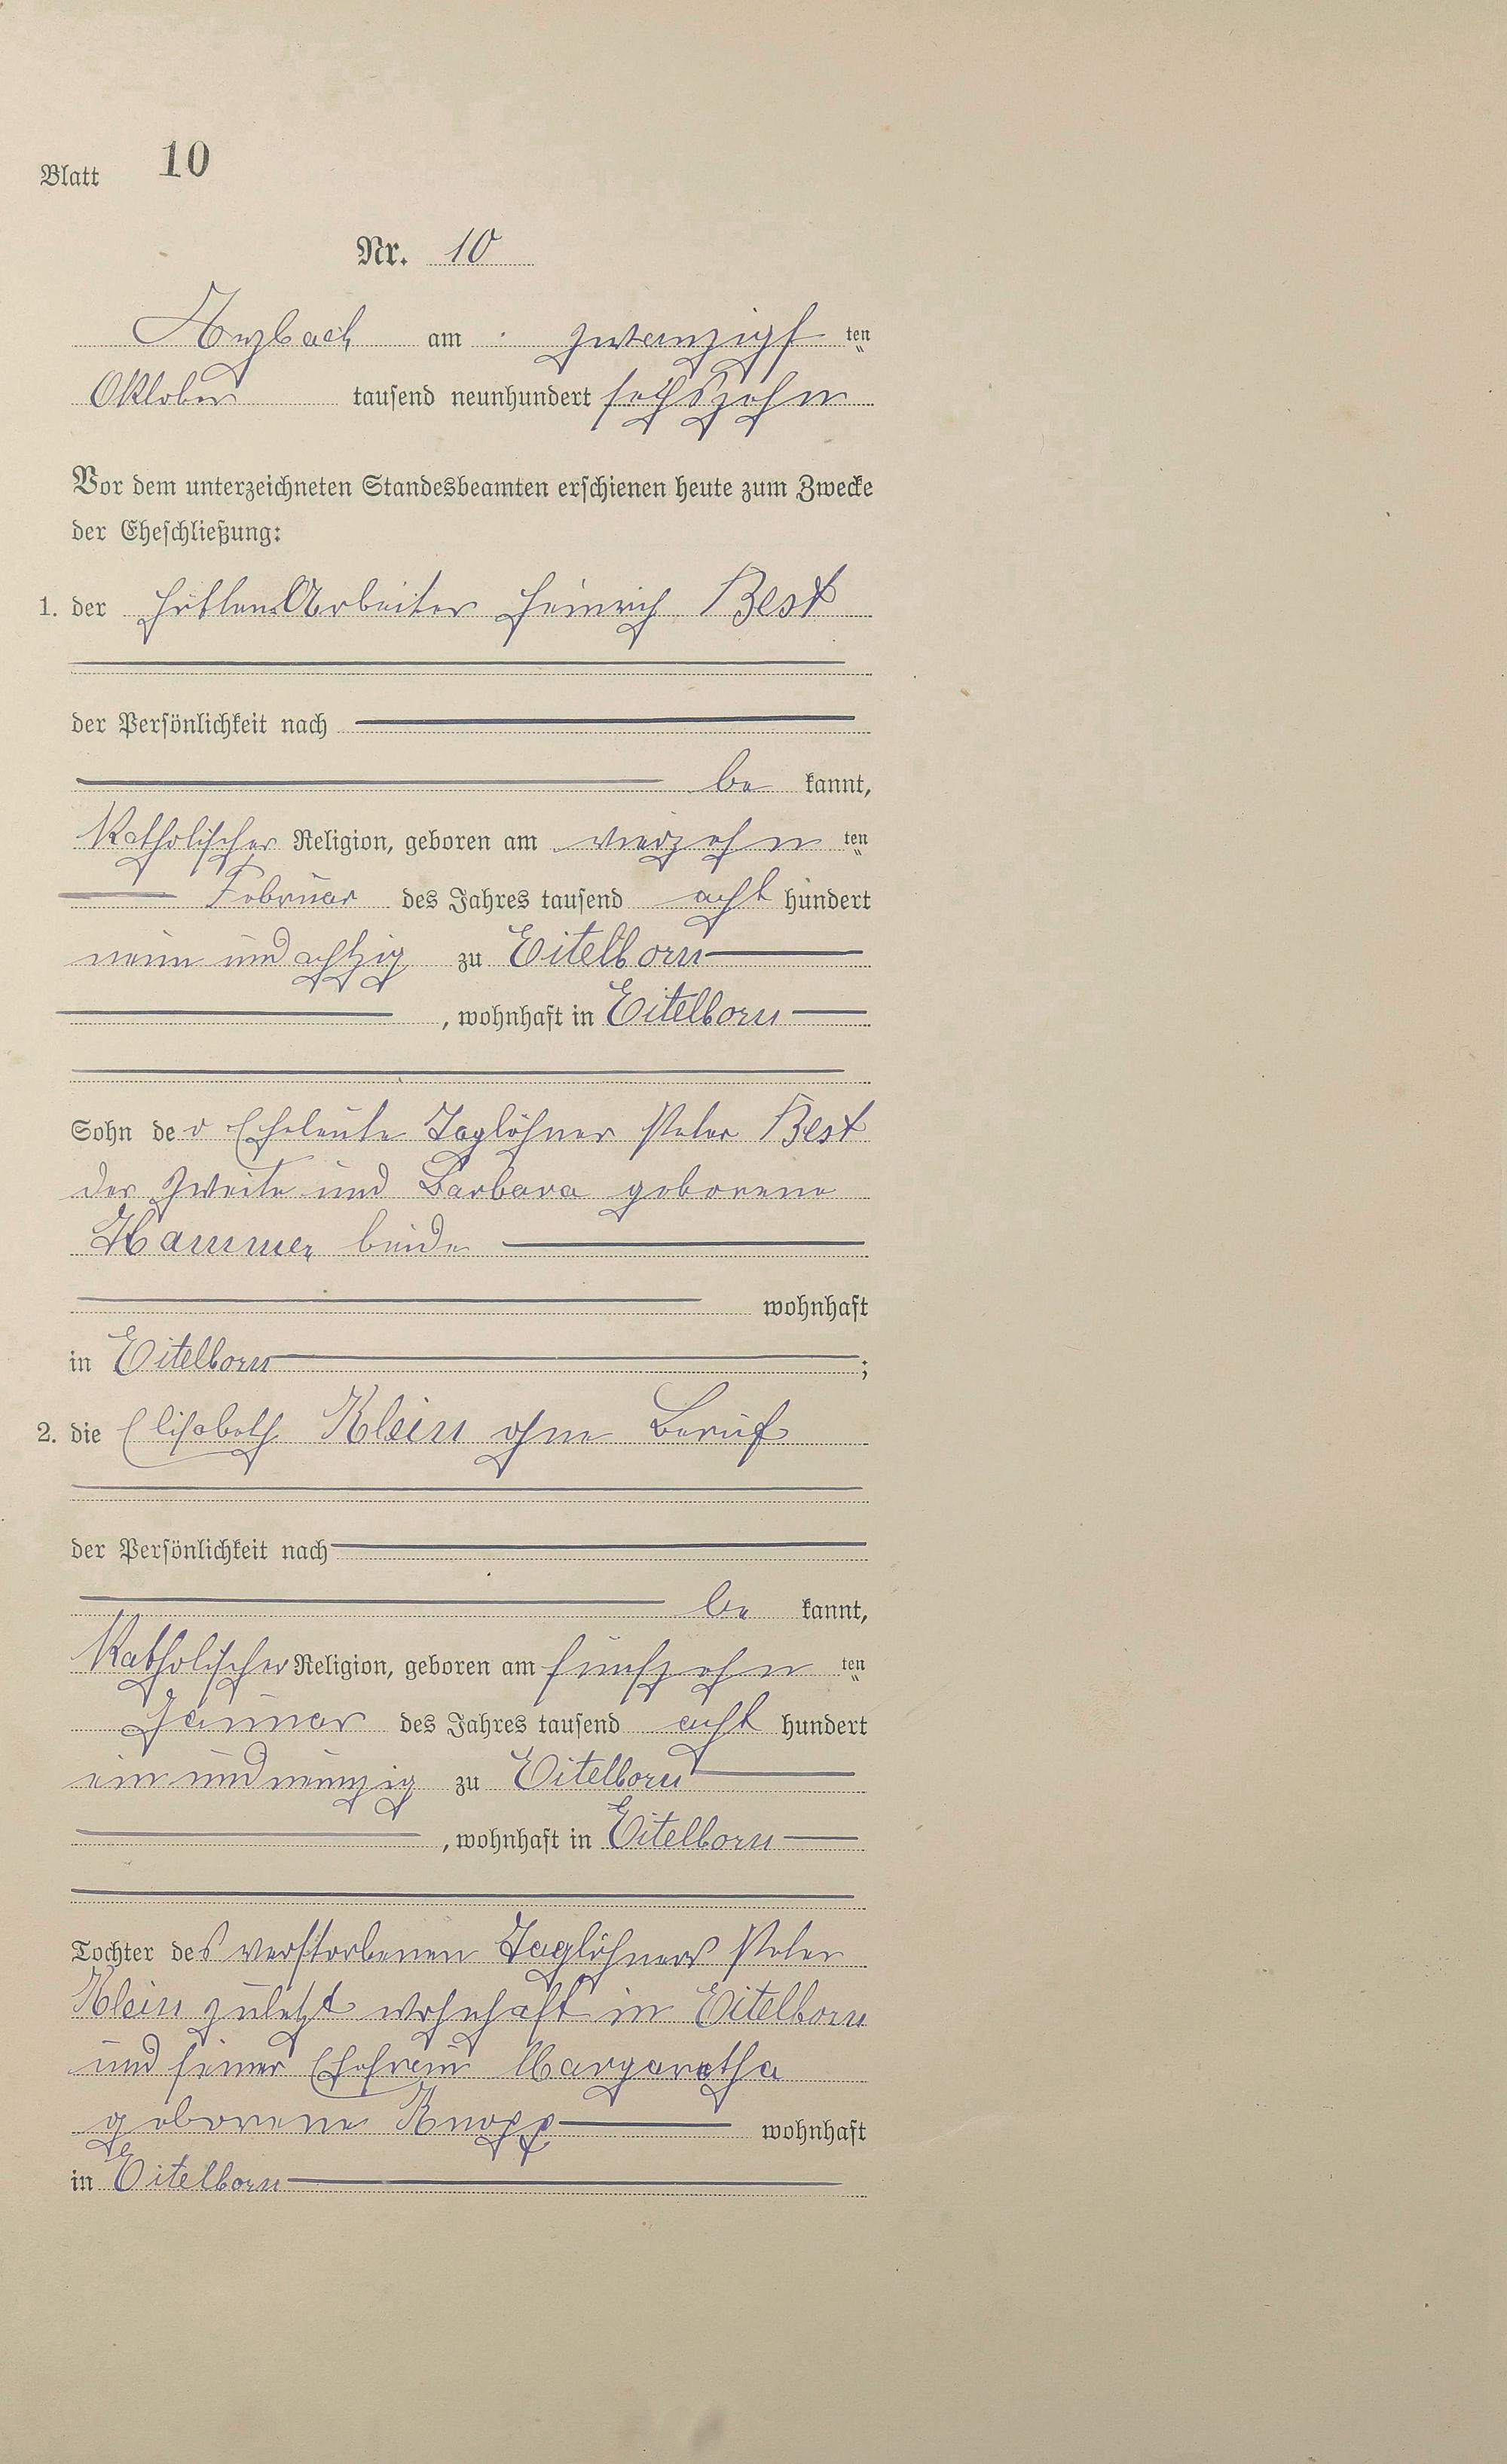 Blatt 10
Nr. 10
Arzbach am zwanzigs ten
Oktober tausend neunhundert sechszehn
Vor dem unterzeichneten Standesbeamten erschienen heute zum Zwecke
der Eheschließung:
1. der HüttenArbeiter Heinrich Best
der Persönlichkeit nach
be kannt,
Katholischer Religion, geboren am vierzehn ten
Februar des Jahres tausend acht hundert
neun und achtzig zu Eitelborn
, wohnhaft in Eitelborn
Sohn der Eheleute Taglöhner Peter Best
der Zweite und Barbara geborene
Hammer beide
wohnhaft
in Eitelborn ;
2. die Elisabeth Klein ohne Beruf
der Persönlichkeit nach
be kannt,
Katholischer Religion, geboren am fünfzehn ten
Januar des Jahres tausend acht hundert
ein und neunzig zu Eitelborn
, wohnhaft in Eitelborn
Tochter des verstorbenen Taglöhners Peter
Klein zuletzt wohnhaft in Eitelborn
und seiner Ehefrau Margaretha
geborene Knopp wohnhaft
in Eitelborn